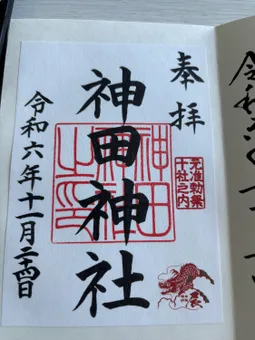 奉拝
元准勅祭
十社之内
神田神社
神田
神社
之印
令和六年十一月二十四日